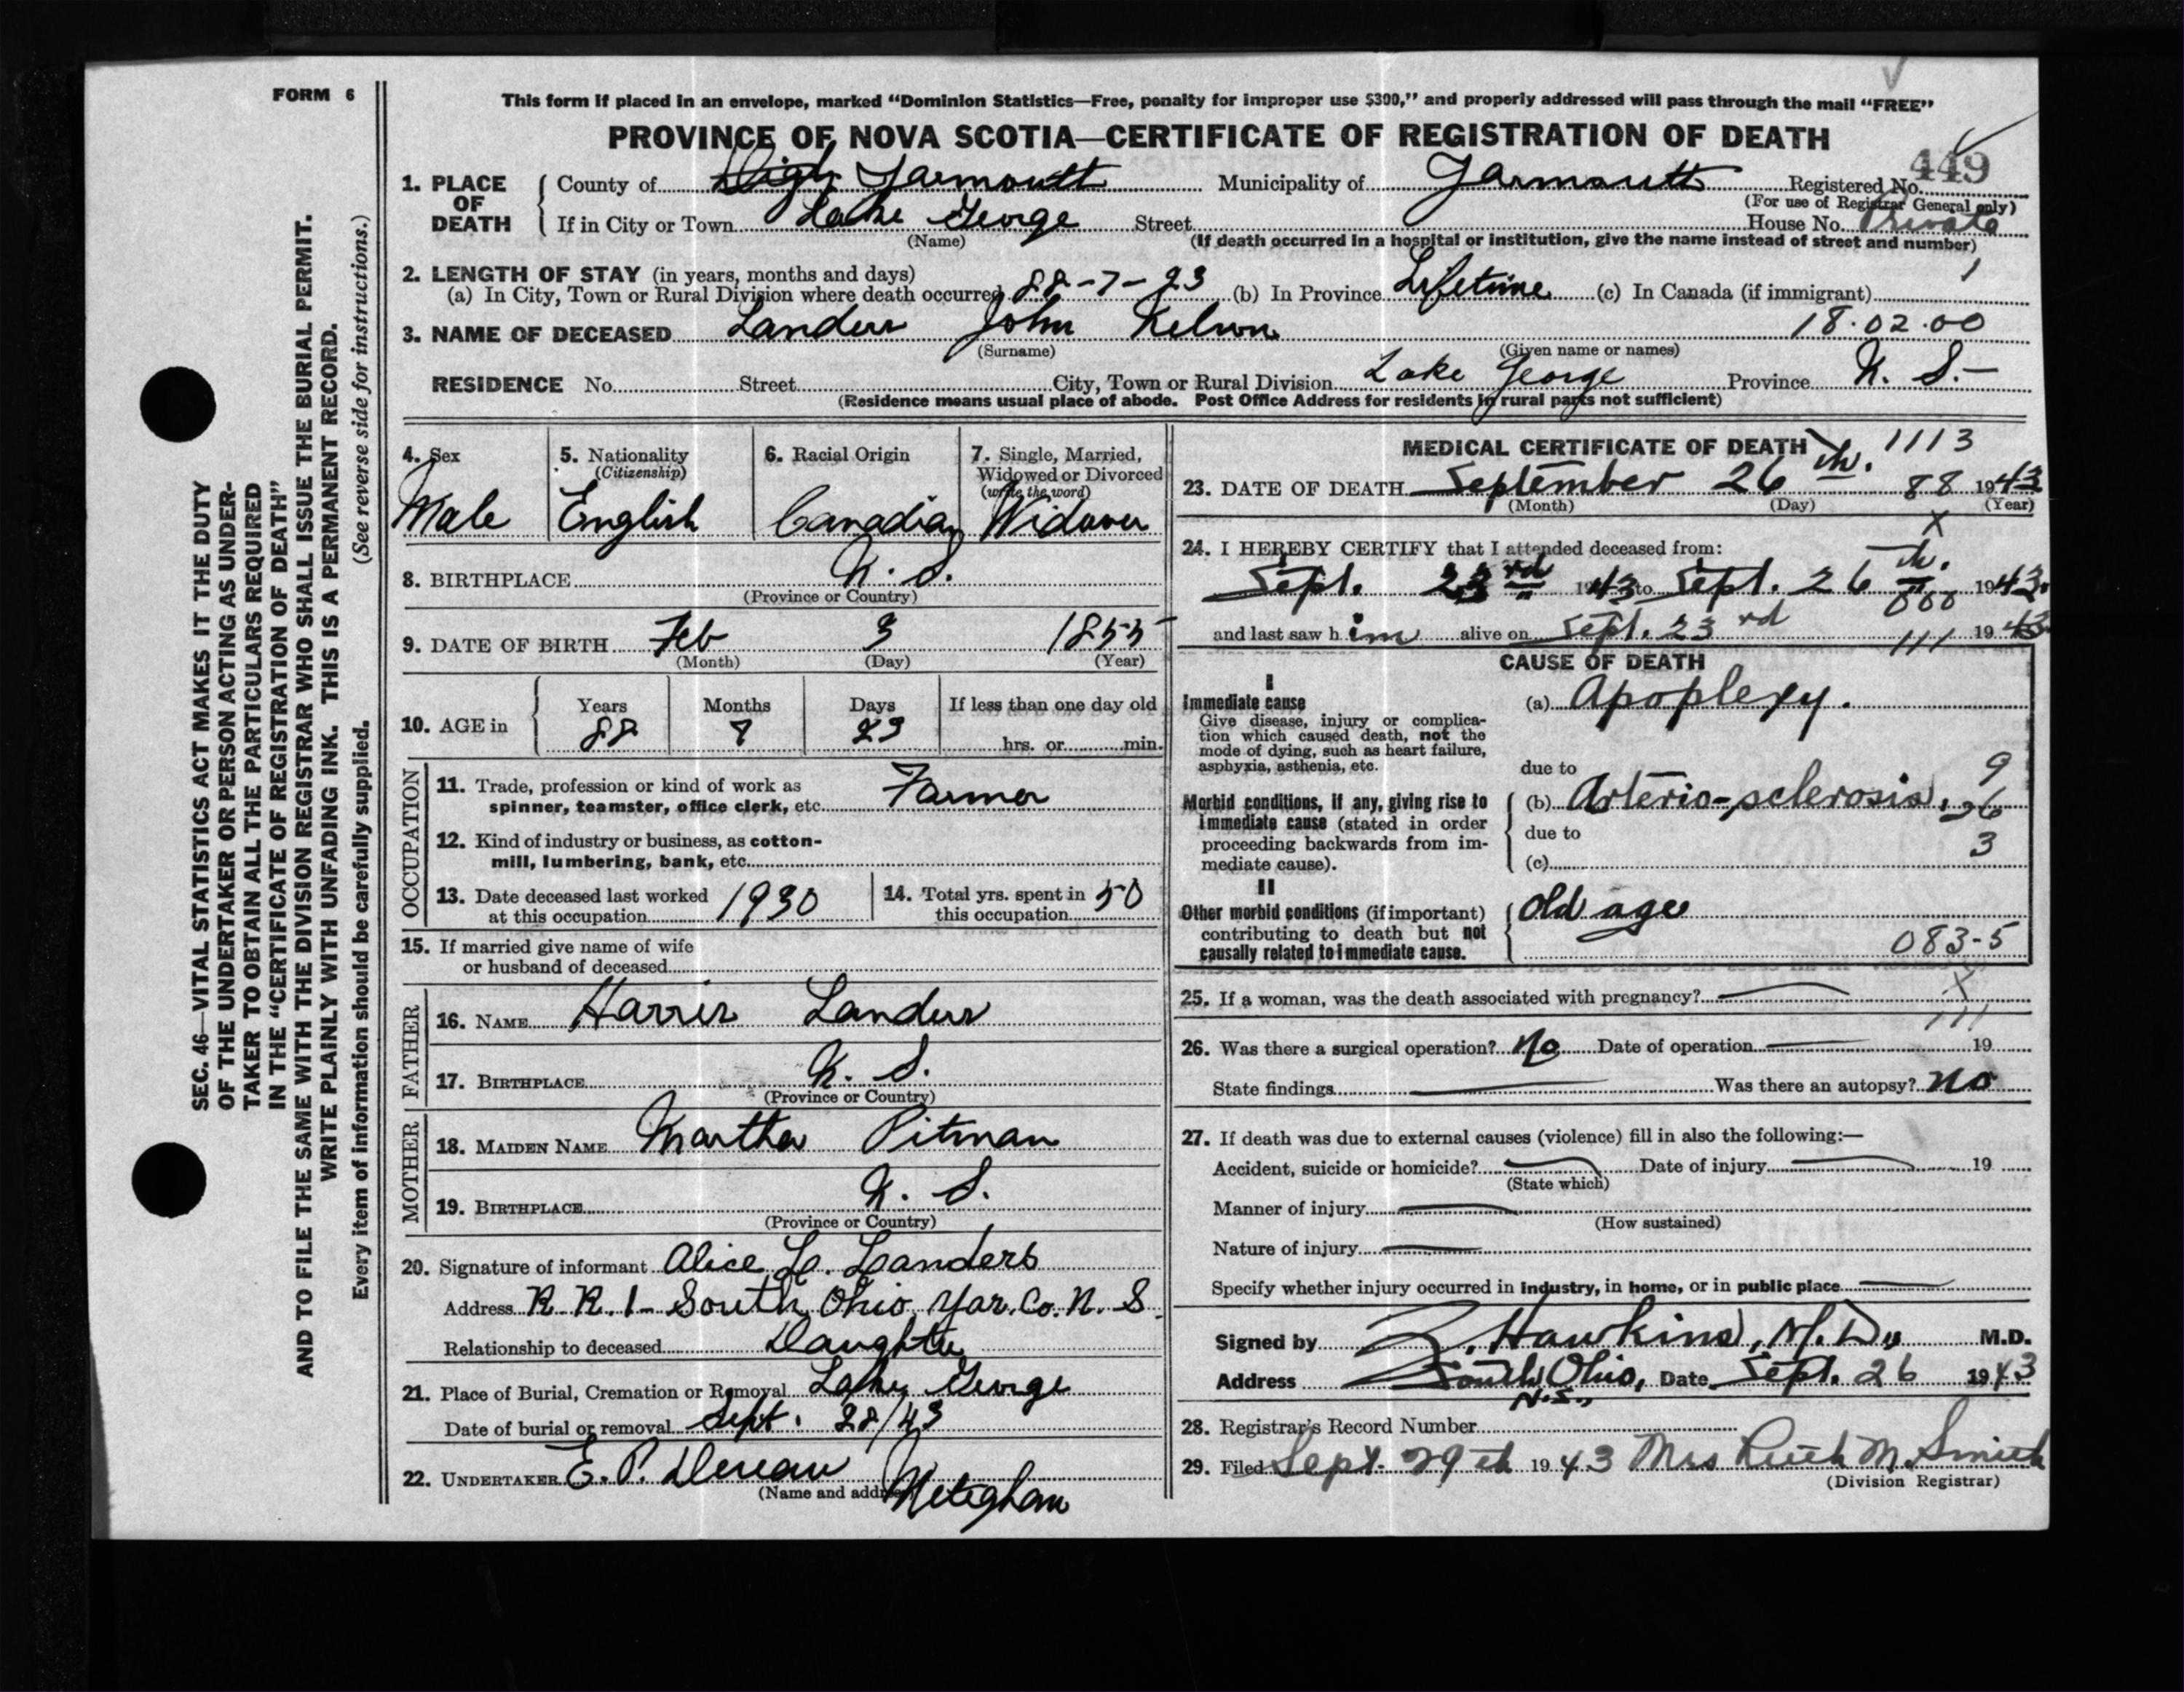 FORM 6
This form if placed in an envelope, marked "Dominion Statistics—Free, penalty for improper use $300," and properly addressed will pass through the mail "FREE"
PROVINCE OF NOVA SCOTIA—CERTIFICATE OF REGISTRATION OF DEATH
449
1. PLACE OF DEATH
County of Yarmouth Municipality of Yarmouth Registered No.
(For use of Registrar General only)
If in City or Town Lake George Street House No. Private
(Name) (If death occurred in a hospital or institution, give the name instead of street and number)
2. LENGTH OF STAY (in years, months and days)
(a) In City, Town or Rural Division where death occurred 88-7-23 (b) In Province Lifetime (c) In Canada (if immigrant)
3. NAME OF DECEASED Landers John 18.02.00
(Surname) (Given name or names)
RESIDENCE No. Street City, Town or Rural Division Lake George Province N. S.—
(Residence means usual place of abode. Post Office Address for residents in rural parts not sufficient)
4. Sex Male
5. Nationality (Citizenship) English
6. Racial Origin Canadian
7. Single, Married, Widowed or Divorced (write the word) Widower
8. BIRTHPLACE N. S.
(Province or Country)
9. DATE OF BIRTH Feb 3 1855
(Month) (Day) (Year)
10. AGE in Years 88 Months 7 Days 23 If less than one day old hrs. or min.
OCCUPATION
11. Trade, profession or kind of work as
spinner, teamster, office clerk, etc. Farmer
12. Kind of industry or business, as cotton-
mill, lumbering, bank, etc.
13. Date deceased last worked at this occupation 1930
14. Total yrs. spent in this occupation 50
15. If married give name of wife
or husband of deceased
FATHER
16. NAME Harris Landers
17. BIRTHPLACE N. S.
(Province or Country)
MOTHER
18. MAIDEN NAME Martha Pitman
19. BIRTHPLACE N. S.
(Province or Country)
20. Signature of informant Alice L. Landers
Address R. R. 1- South Ohio, Yar. Co. N. S.
Relationship to deceased Daughter
21. Place of Burial, Cremation or Removal Lake George
Date of burial or removal Sept. 28/43
22. UNDERTAKER E. P.
(Name and address) Meteghan
MEDICAL CERTIFICATE OF DEATH 1113
23. DATE OF DEATH September 26 th. 88 1943
(Month) (Day) (Year)
X
24. I HEREBY CERTIFY that I attended deceased from:
Sept. 23 rd 1943 to Sept. 26 th. 1943.
000
and last saw him alive on Sept. 23 rd 1943
111
CAUSE OF DEATH
I
Immediate cause
Give disease, injury or complica-
tion which caused death, not the
mode of dying, such as heart failure,
asphyxia, asthenia, etc.
(a) Apoplexy.
due to
Morbid conditions, if any, giving rise to
immediate cause (stated in order
proceeding backwards from im-
mediate cause).
(b) Arterio-sclerosis.
due to
(c)
9
26
3
II
Other morbid conditions (if important)
contributing to death but not
causally related to immediate cause.
Old age
083-5
25. If a woman, was the death associated with pregnancy? — X
111
26. Was there a surgical operation? No Date of operation — 19
State findings — Was there an autopsy? No
27. If death was due to external causes (violence) fill in also the following:—
Accident, suicide or homicide? — Date of injury — 19
(State which)
Manner of injury —
(How sustained)
Nature of injury —
Specify whether injury occurred in industry, in home, or in public place —
Signed by Z. Hawkins, M. D. M.D.
Address South Ohio, N.S., Date Sept. 26 1943
28. Registrar's Record Number
29. Filed Sept. 29th 1943 Mrs Ruth M. Smith
(Division Registrar)
SEC. 46—VITAL STATISTICS ACT MAKES IT THE DUTY
OF THE UNDERTAKER OR PERSON ACTING AS UNDER-
TAKER TO OBTAIN ALL THE PARTICULARS REQUIRED
IN THE "CERTIFICATE OF REGISTRATION OF DEATH"
AND TO FILE THE SAME WITH THE DIVISION REGISTRAR WHO SHALL ISSUE THE BURIAL PERMIT.
WRITE PLAINLY WITH UNFADING INK. THIS IS A PERMANENT RECORD.
Every item of information should be carefully supplied. (See reverse side for instructions.)